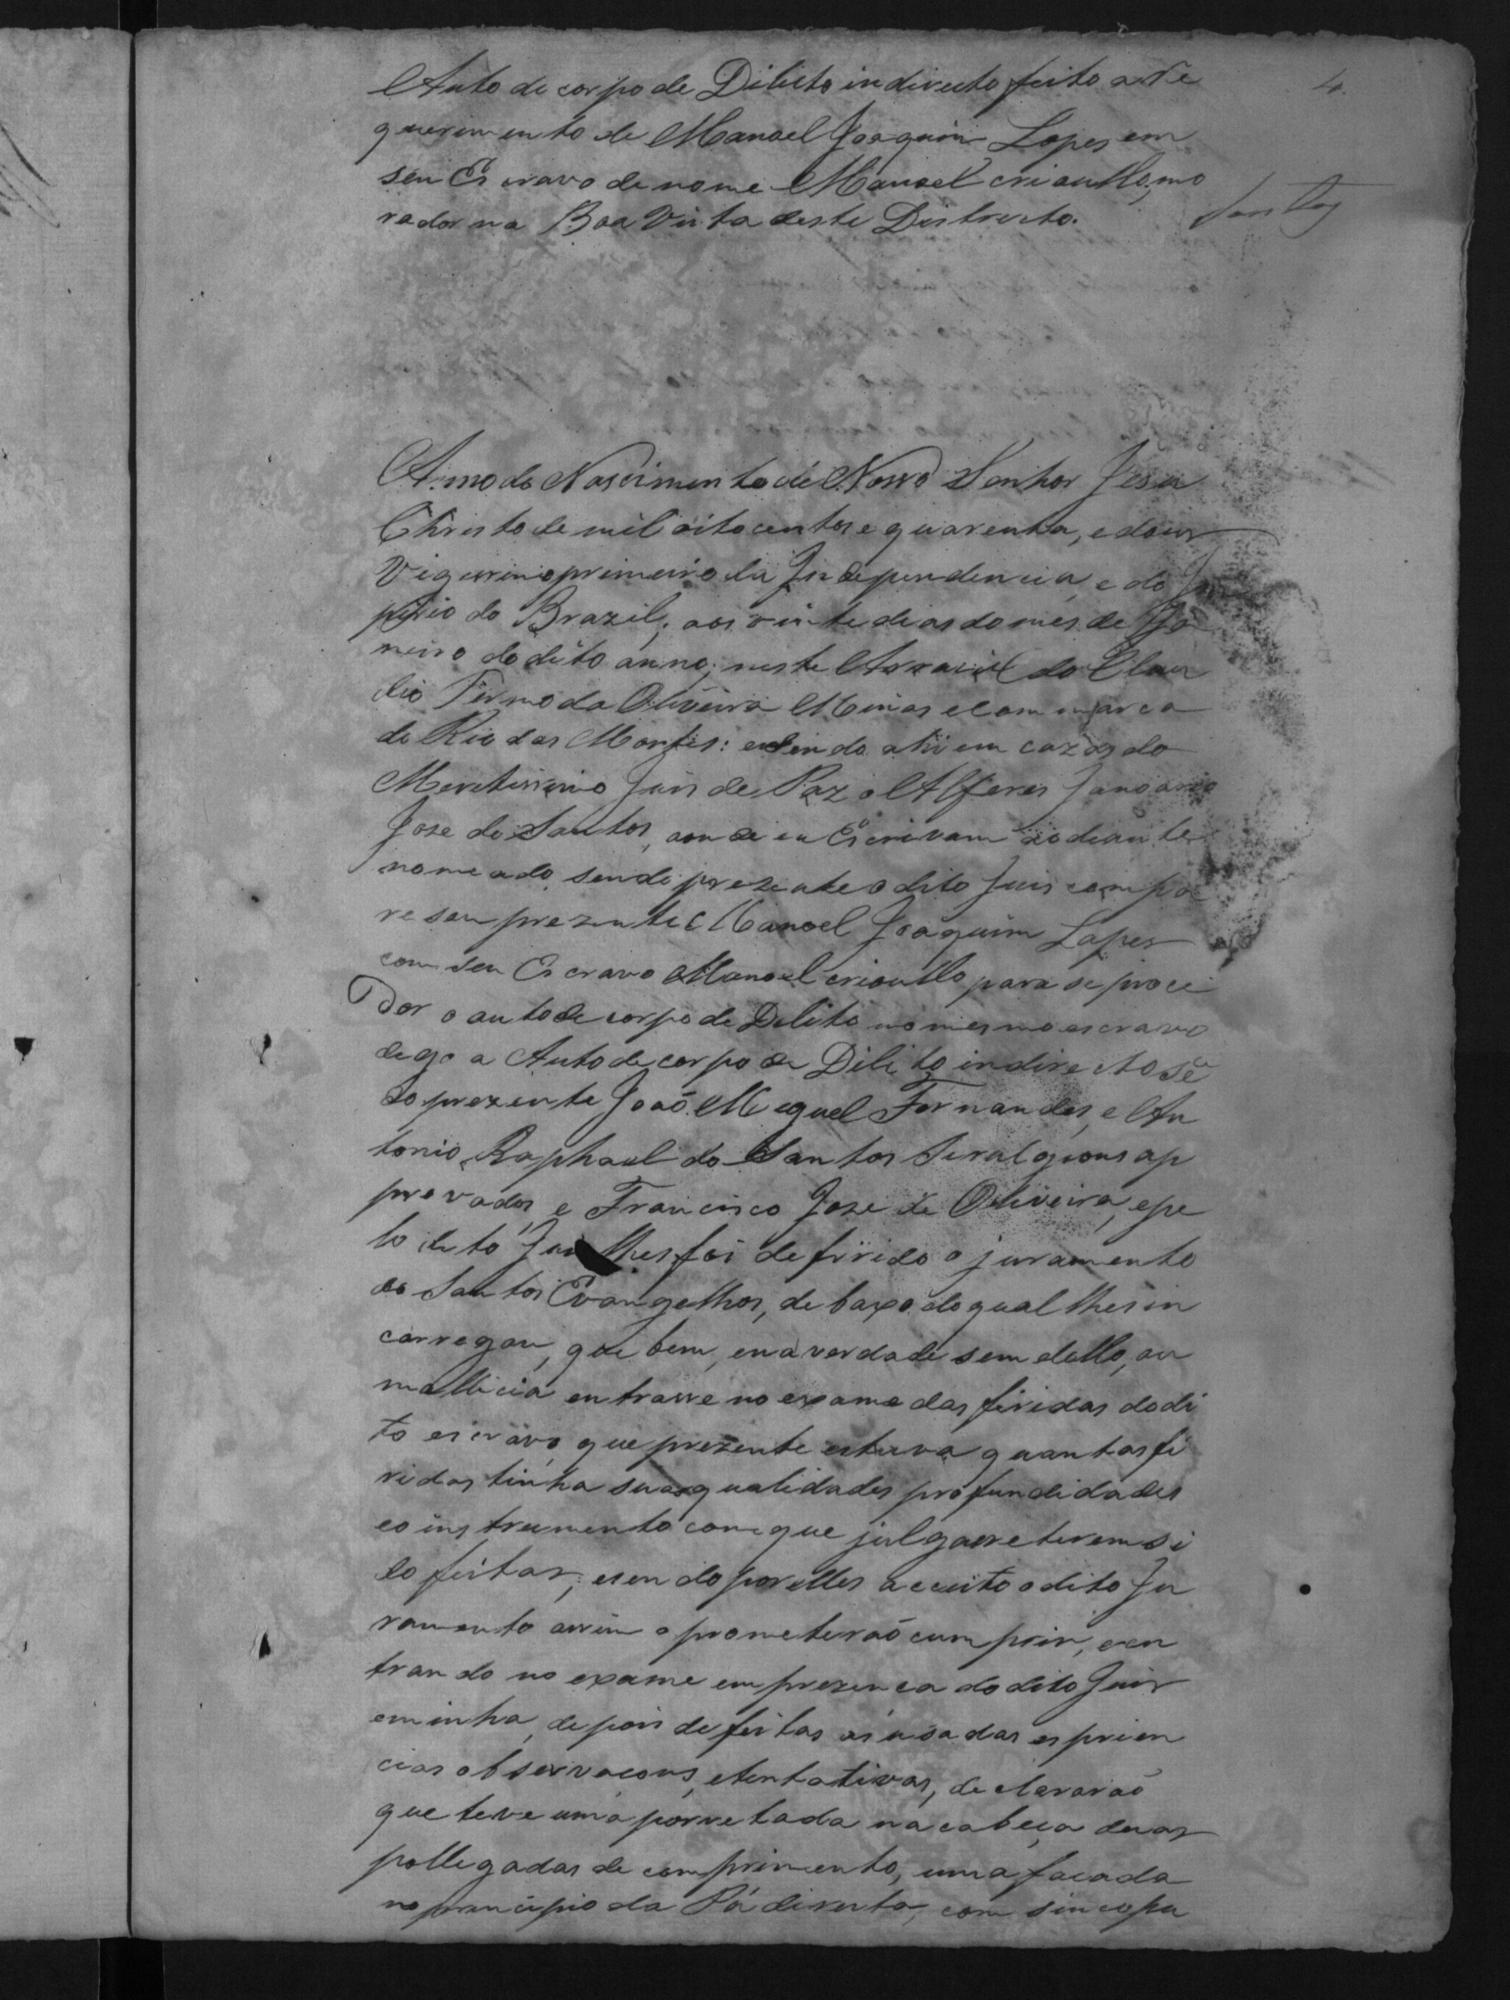 4.
Auto de corpo de Dilicto indirecto feito a re
querimento de Manoel Joaquim Lopes em
seu Escravo de nome Manoel crioullo, mo
rador na Boa Vista deste Districto.
Santos
Anno do Nascimento de Nosso Senhor Jesu
Christo de mil oito centos e quarenta, e dous
Vigesimo primeiro da Independencia, e do Im
perio do Brazil; aos vinte dias do mes de Ja
neiro do dito anno; neste Arraial do Clau
dio Termo da Oliveira Minas e Commarca
do Rio das Mortes: e sendo ahi em cazas do
Meretissimo Juis de Paz o Alferes Januario
Jose de Santos, aonde eu Escrivam ao diante
nomeado, sendo prezente o dito Juis compa
reseu prezente Manoel Joaquim Lopes
com seu Escravo Manoel crioullo para se proce
dor o auto de corpo de Delito no mesmo escravo
dego a Auto de corpo de Dilito indirecto sẽ
do prezente Joaõ Meguel Fernandes, e An
tonio Raphael do Santos Siralgions ap
provados e Francisco Jose de Oliveira, e pe
lo dito Juis lhes foi defirido o juramento
dos Santos Evangelhos, debaxo do qual lhes in
carregou, que bem, e na verdade sem dollo, ou
mallicia entrasse no exame das firidas do di
to escravo, que prezente estava quantas fi
ridas tinha suas qualidades profundidades
e o instrumento com que julgasse terem si
do feitas; e sendo por elles aceito o dito Ju
ramento assim o prometeraõ cumprir, e en
trando no exame em prezenca do dito Juis
e minha, depois de feitas as uzadas esprien
cias observacons, e tentativas, declararaõ
que teve uma porretada na cabeça duas
pollegadas de comprimento, uma facada
no principio da Pá direita, com sinco pu